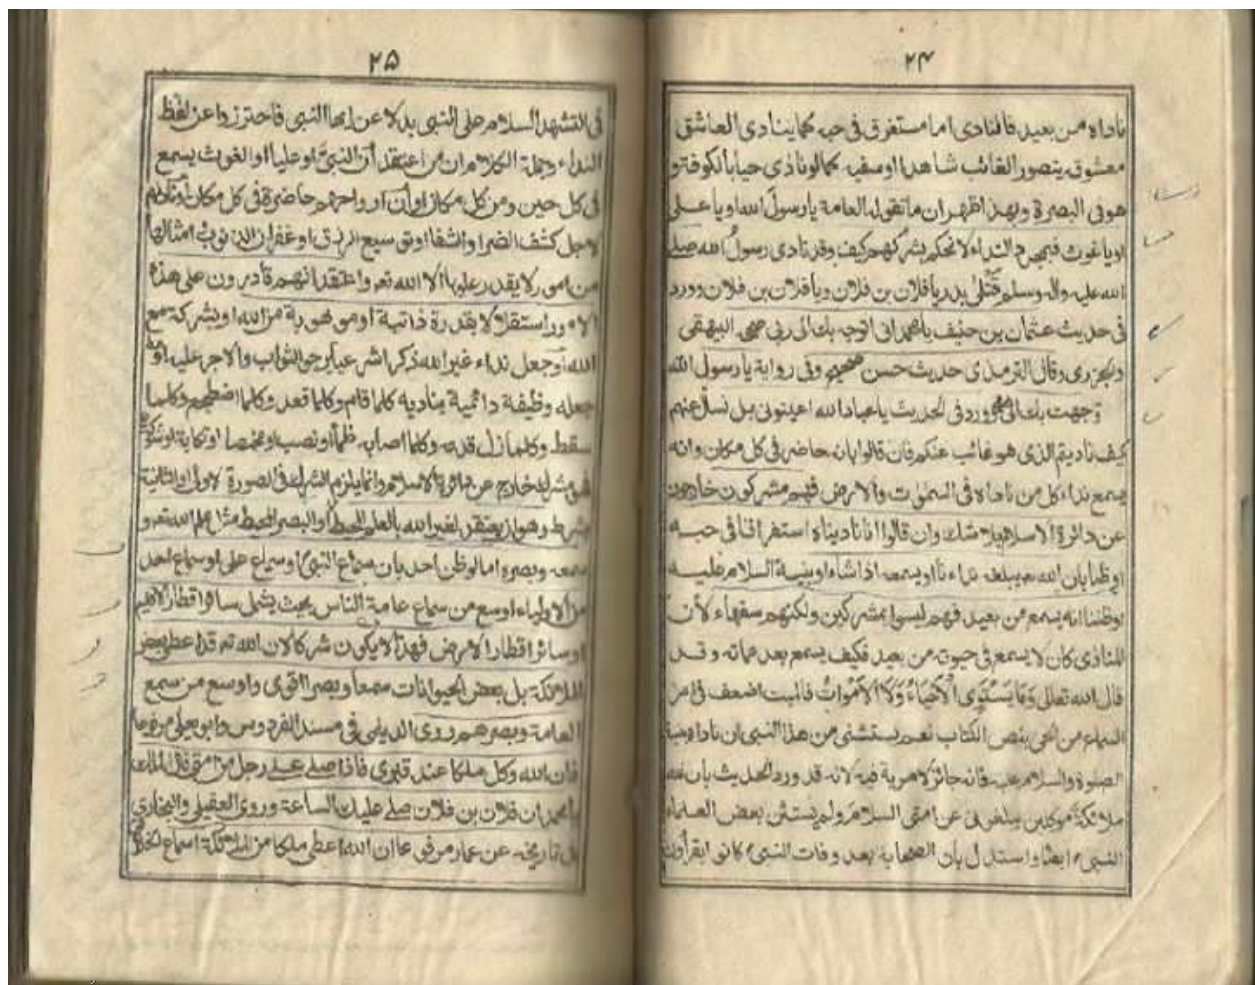 ۲۴
ناداه من بعيد فالمنادى اما مستغرق فى حبه كما ينادى العاشق
معشوقه يتصور الغائب شاهدا او سفيه كما لو نادى حيا بالكوفة و
هو فى البصرة وبهذا ظهر ان ما تقوله العامة يا رسول الله او يا على
او يا غوث فبمجرد النداء لا نحكم بشركهم كيف وقد نادى رسول الله صلے
الله عليه واله وسلم قتلى بدر يا فلان بن فلان ويا فلان بن فلان وورد
فى حديث عثمان بن حنيف يا محمد انى اتوجه بك الى ربى صححه البيهقى
والجزرى وقال الترمذى حديث حسن صحيح وفى رواية يا رسول الله
توجهت بك الى وورد فى الحديث يا عباد الله اعينونى بل نسأل عنهم
كيف ناديتم الذى هو غائب عنكم فان قالوا بانه حاضر فى كل مكان وانه
يسمع نداء كل من ناداه فى السموات والارض فهم مشركون خارجون
عن دائرة الاسلام بلا شك وان قالوا انا ناديناه استغراقا فى حبه
او ظنا بان الله يبلغه نداءنا او يسمعه اذا شاء او بنية السلام عليه
او ظننا انه يسمع من بعيد فهم ليسوا بمشركين ولكنهم سفهاء لأن
المنادى كان لا يسمع فى حيوته من بعيد فكيف يسمع بعد مماته وقد
قال الله تعالى وَمَا يَسْتَوِى الْأَحْيَاءُ وَلَا الْأَمْوَاتُ فالميت اضعف فى امر
السماع من الحى بنص الكتاب نعم يستثنى من هذا النبى ان ناداه بنية
الصلوة والسلام عليه فانه جائز لا مرية فيه لانه قد ورد الحديث بان لله
ملائكة موكلين يبلغونى عن امتى السلام ولم يستثن بعض العلماء
النبى ايضا واستدل بان الصحابة بعد وفات النبى كانوا يقرأون
۲۵
فى التشهد السلام على النبى بدلا عن ايها النبى فاحترزوا عن لفظ
النداء وجملة الكلام ان من اعتقد أن النبىَّ او عليا او الغوث يسمع
فى كل حين ومن كل مكان او أن ارواحهم حاضرة فى كل مكان
لاجل كشف الضر او الشفا او توسيع الرزق او غفران الذنوب امثالها
من امور لا يقدر عليها الا الله تعم واعتقد انهم قادرون على هذه
الامور استقلالا بقدرة ذاتية او موهوبة من الله او بشركة مع
الله او جعل نداء غير الله ذكرا شرعيا يرجو الثواب والاجر عليه او
جعله وظيفة دائمية يناديه كلما قام وكلما قعد وكلما اضطجع وكلما
سقط وكلما زل قدمه وكلما اصابه ظمأ او نصب او مخمصة او نكاية او
فهو مشرك خارج عن دائرة الاسلام وانما يلزم الشرك فى الصورة الاولى والثانية
بشرط وهو ان يعتقد لغير الله بالعلم المحيط او البصر المحيط مثل علم الله تعم و
سمعه وبصره اما لو ظن احد بان سماع النبى او سماع على او سماع احد
من الاولياء اوسع من سماع عامة الناس بحيث يشمل سائر اقطار الاقليم
او سائر اقطار الارض فهذا لا يكون شركا لان الله تعم قد اعطى بعض
الملائكة بل بعض الحيوانات سمعا وبصرا اقوى واوسع من سمع
العامة وبصرهم روى الديلمى فى مسند الفردوس وابو يعلى مرفوعا
فان الله وكل ملكا عند قبرى فاذا صلے علے رجل من امتى قال الملك
يا محمد ان فلان بن فلان صلے عليك الساعة وروى العقيلى والبخارى
فى تاريخه عن عمار مرفوعا ان الله اعطى ملكا من الملائكة اسماع الخلائق